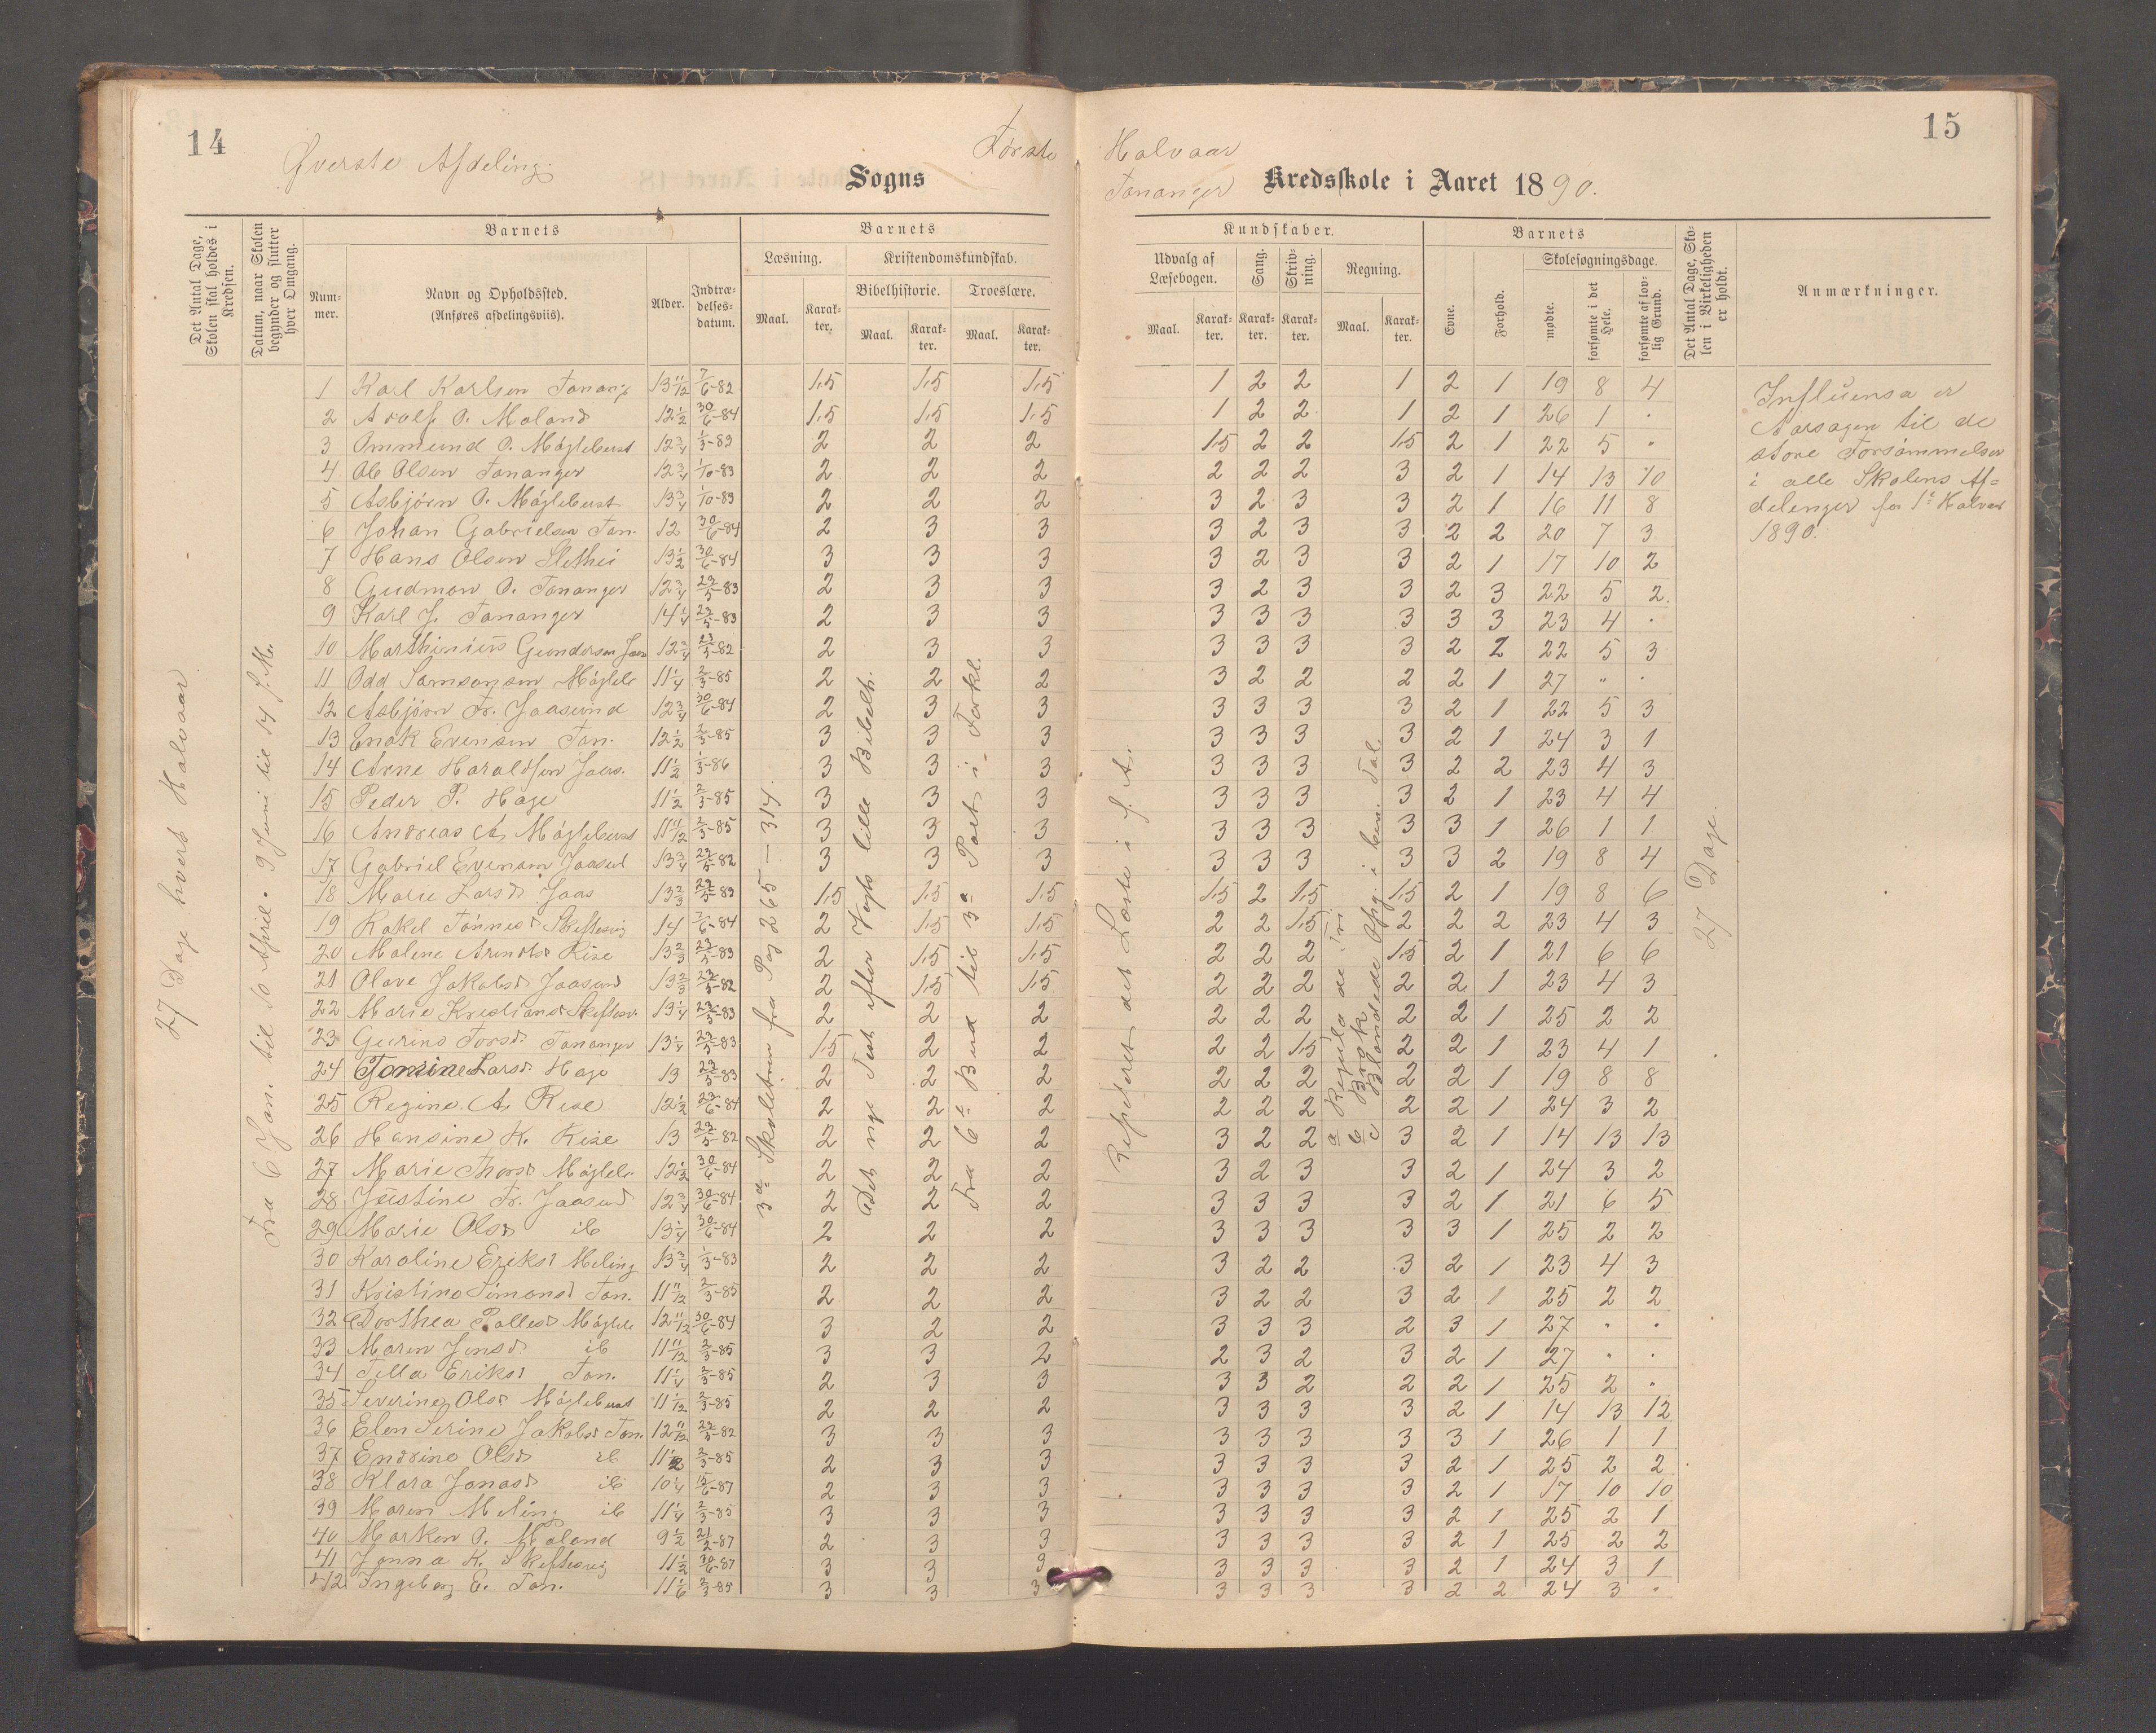 14
Øverste Afdeling.
Første
Sogns
Halvaar
Tananger
Kredsskole i Aaret 1890.
15
Det Antal Dage, Skolen skal holdes i Kredsen.
Datum, naar Skolen begynder og slutter hver Omgang.
Barnets
Barnets
Kundskaber.
Barnets
Det Antal Dage, Skolen i Virkeligheden er holdt.
Anmærkninger.
Nummer.
Navn og Opholdssted.
(Anføres afdelingsviis).
Alder.
Indtrædelsesdatum.
Læsning.
Kristendomskundskab.
Bibelhistorie.
Troeslære.
Maal.
Karakter.
Maal.
Karakter.
Maal.
Karakter.
Udvalg af Læsebogen.
Sang.
Skrivning.
Regning.
Maal.
Karakter.
Karakter.
Karakter.
Maal.
Karakter.
Evne.
Forhold.
Skolesøgningsdage.
mødte.
forsømte i det Hele.
forsømte af lovlig Grund.
27 Dage hvert Halvaar
Fra 6 Jan. til 10 April. 9 Juni til 14 J. M.
3die Skoletrin fra Pag 265 – 314.
Det nye Test efter Vogts lille Bibelh.
Fra 6te Bud til 3die Part i Forkl.
Repeteret det Læste i f. A.
a Regula de tri
b Brøk
c Blandede Opg. i ben. Tal.
27 Dage.
Influensa er
Aarsagen til de
store Forsømmelser
i alle Skolens Af=
delinger for 1ste Halvaar
1890.
1 Karl Karlsen Tanang. 13 11/12 7/6-82 1,5 1,5 1,5 1 2 2 1 2 1 19 8 4
2 Adolf O. Maland 12 1/2 30/6-84 1,5 1,5 1,5 1 2 2 1 2 1 26 1 "
3 Ommund O. Møglebust 12 3/4 1/3-83 2 2 2 1,5 2 2 1,5 2 1 22 5 "
4 Ole Olsen Tananger 12 3/4 1/10-83 2 2 2 2 2 2 3 2 1 14 13 10
5 Asbjørn O. Møglebust 13 3/4 1/10-83 2 2 2 3 2 3 3 2 1 16 11 8
6 Johan Gabrielsen Tan. 12 30/6-84 2 3 3 3 2 3 3 2 2 20 7 3
7 Hans Olsen Slethei 13 1/2 30/6-84 3 3 3 3 2 3 3 2 1 17 10 2
8 Gudman O. Tananger 12 3/4 23/5-83 2 3 3 3 2 3 3 2 3 22 5 2
9 Karl J. Tananger 14 1/4 23/5-83 2 3 3 3 3 3 3 3 3 23 4 "
10 Marthinius Gundersen Jaas 12 3/4 23/5-82 2 3 3 3 3 3 3 2 2 22 5 3
11 Odd Samsonsen Møgleb 11 1/4 2/3-85 2 2 2 3 2 2 2 2 1 27 " "
12 Asbjørn Fr. Jaasund 12 3/4 30/6-84 2 3 3 3 3 3 3 2 1 22 5 3
13 Enok Evensen Tan. 12 1/2 2/3-85 3 3 3 3 3 3 3 2 1 24 3 1
14 Arne Haraldsen Jaas. 11 1/2 1/3-86 3 3 3 3 3 3 3 2 2 23 4 3
15 Peder P. Hage 11 1/2 2/3-85 3 3 3 3 3 3 3 2 1 23 4 4
16 Andreas A. Møglebust 11 11/12 2/3-85 3 3 3 3 3 3 3 3 1 26 1 1
17 Gabriel Evensen Jaasud 13 3/4 23/5-82 3 3 3 3 3 3 3 3 2 19 8 4
18 Marie Larsd Jaas 13 2/3 23/5-83 1,5 1,5 1,5 1,5 2 1,5 1,5 2 1 19 8 6
19 Rakel Tønnesd Skiftesvig 14 7/6-84 2 1,5 1,5 2 2 1,5 2 2 2 23 4 3
20 Malene Arentsd Rise 13 2/3 23/5-83 2 1,5 1,5 2 2 2 1,5 2 1 21 6 6
21 Olave Jakobsd Jaasund 13 2/3 23/5-82 2 1,5 1,5 2 2 2 2 2 1 23 4 3
22 Marie Kristiansd Skiftesv. 13 1/4 23/5-83 2 2 2 2 2 2 2 2 1 25 2 2
23 Gurine Torsd. Tananger 13 1/4 23/5-83 1,5 2 2 2 2 1,5 2 2 1 23 4 1
24 Tomine Larsd. Hage 13 23/5-83 2 2 2 2 2 2 2 2 1 19 8 8
25 Regine A. Rise 12 1/2 23/6-84 2 2 2 2 2 2 2 2 1 24 3 2
26 Hansine K. Rise 13 23/5-82 2 2 2 3 2 2 3 2 1 14 13 13
27 Marie Thorsd Møgleb. 12 1/2 30/6-84 2 2 2 3 2 3 3 2 1 24 3 2
28 Justine Fr. Jaasud 12 3/4 30/6-84 2 2 2 3 3 3 3 2 1 21 6 5
29 Marie Olsd ib 13 1/4 30/6-84 2 2 2 3 3 3 3 3 1 25 2 2
30 Karoline Eriksd Meling 13 3/4 1/3-83 2 2 2 3 2 2 3 2 1 23 4 3
31 Kristine Simonsd Tan. 11 11/12 2/3-85 2 2 2 3 2 2 3 2 1 25 2 2
32 Dorthea Pallesd Møgleb 12 11/12 30/6-84 3 2 2 3 3 3 2 3 1 27 " "
33 Maren Jensd. ib 11 11/12 2/3-85 3 3 2 2 3 2 3 2 1 27 " "
34 Tella Eriksd Tan. 11 1/4 2/3-85 2 3 3 3 3 2 2 2 1 25 2 "
35 Severine Olsd Møglebust 11 1/12 2/3-85 2 2 2 3 3 3 3 2 1 14 13 12
36 Elen Serine Jakobsd Tan. 12 11/12 23/5-82 3 3 3 3 3 3 3 3 1 26 1 1
37 Endrine Olsd ib 11 1/2 2/3-85 2 3 3 3 3 3 3 2 1 25 2 2
38 Klara Jonasd ib 10 1/4 15/6-87 2 3 3 3 3 3 3 2 1 17 10 10
39 Maren Meling ib 11 1/4 2/3-85 3 3 3 3 3 3 3 2 1 25 2 1
40 Marken O. Maland 9 1/2 21/2-87 2 3 3 3 3 3 3 2 1 25 2 2
41 Janna K. Skiftesvig 11 1/2 30/6-87 3 3 3 3 3 3 3 2 1 24 3 1
42 Ingeborg E. Tan. 11 1/6 2/3-85 3 3 3 3 3 3 3 2 2 24 3 "